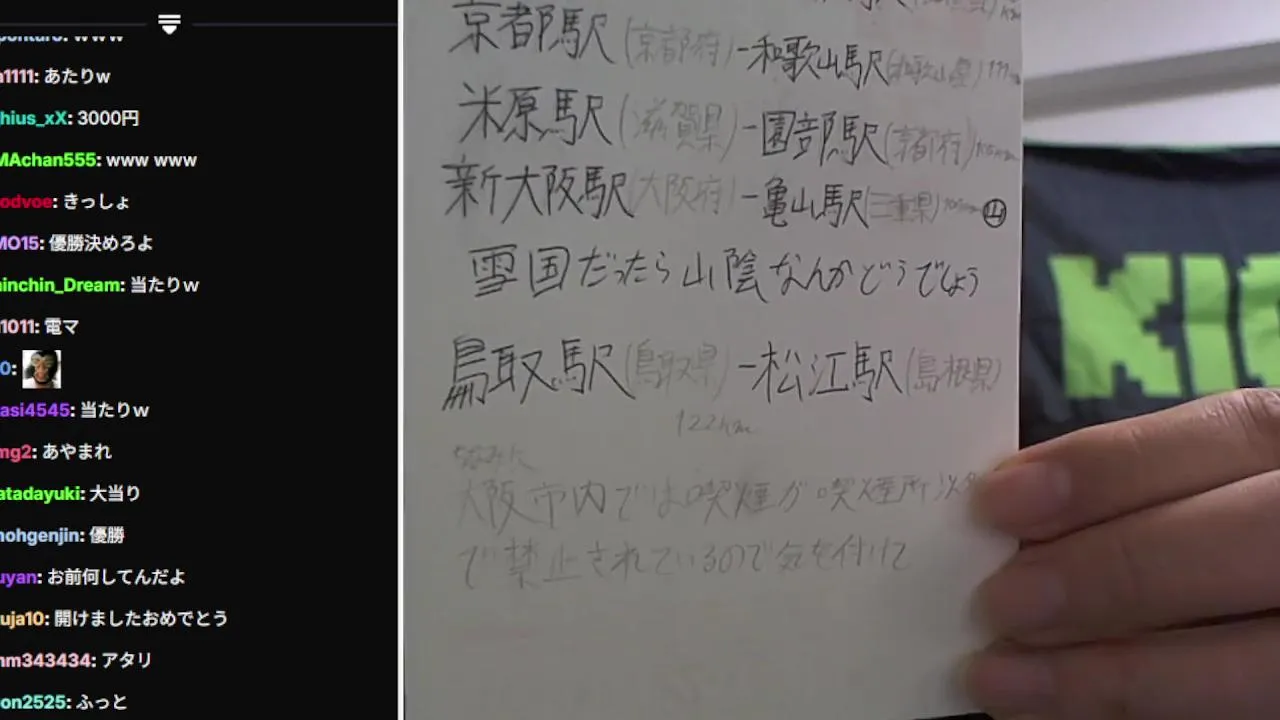 www
1111: あたりw
hius_xX: 3000円
MAchan555: www www
odvoe: きっしょ
MO15: 優勝決めろよ
ninchin_Dream: 当たりw
1011: 電マ
0:
asi4545: 当たりw
mg2: あやまれ
atadayuki: 大当り
nohgenjin: 優勝
uyan: お前何してんだよ
uja10: 開けましたおめでとう
nm343434: アタリ
on2525: ふっと
京都駅(京都府)-和歌山駅(和歌山県)
米原駅(滋賀県)-園部駅(京都府)
新大阪駅(大阪府)-亀山駅(三重県)
雪国だったら山陰なんかどうでしょう
鳥取駅(鳥取県)-松江駅(島根県)
122km
ちなみに
大阪市内では喫煙が喫煙所以外
で禁止されているので気を付けて